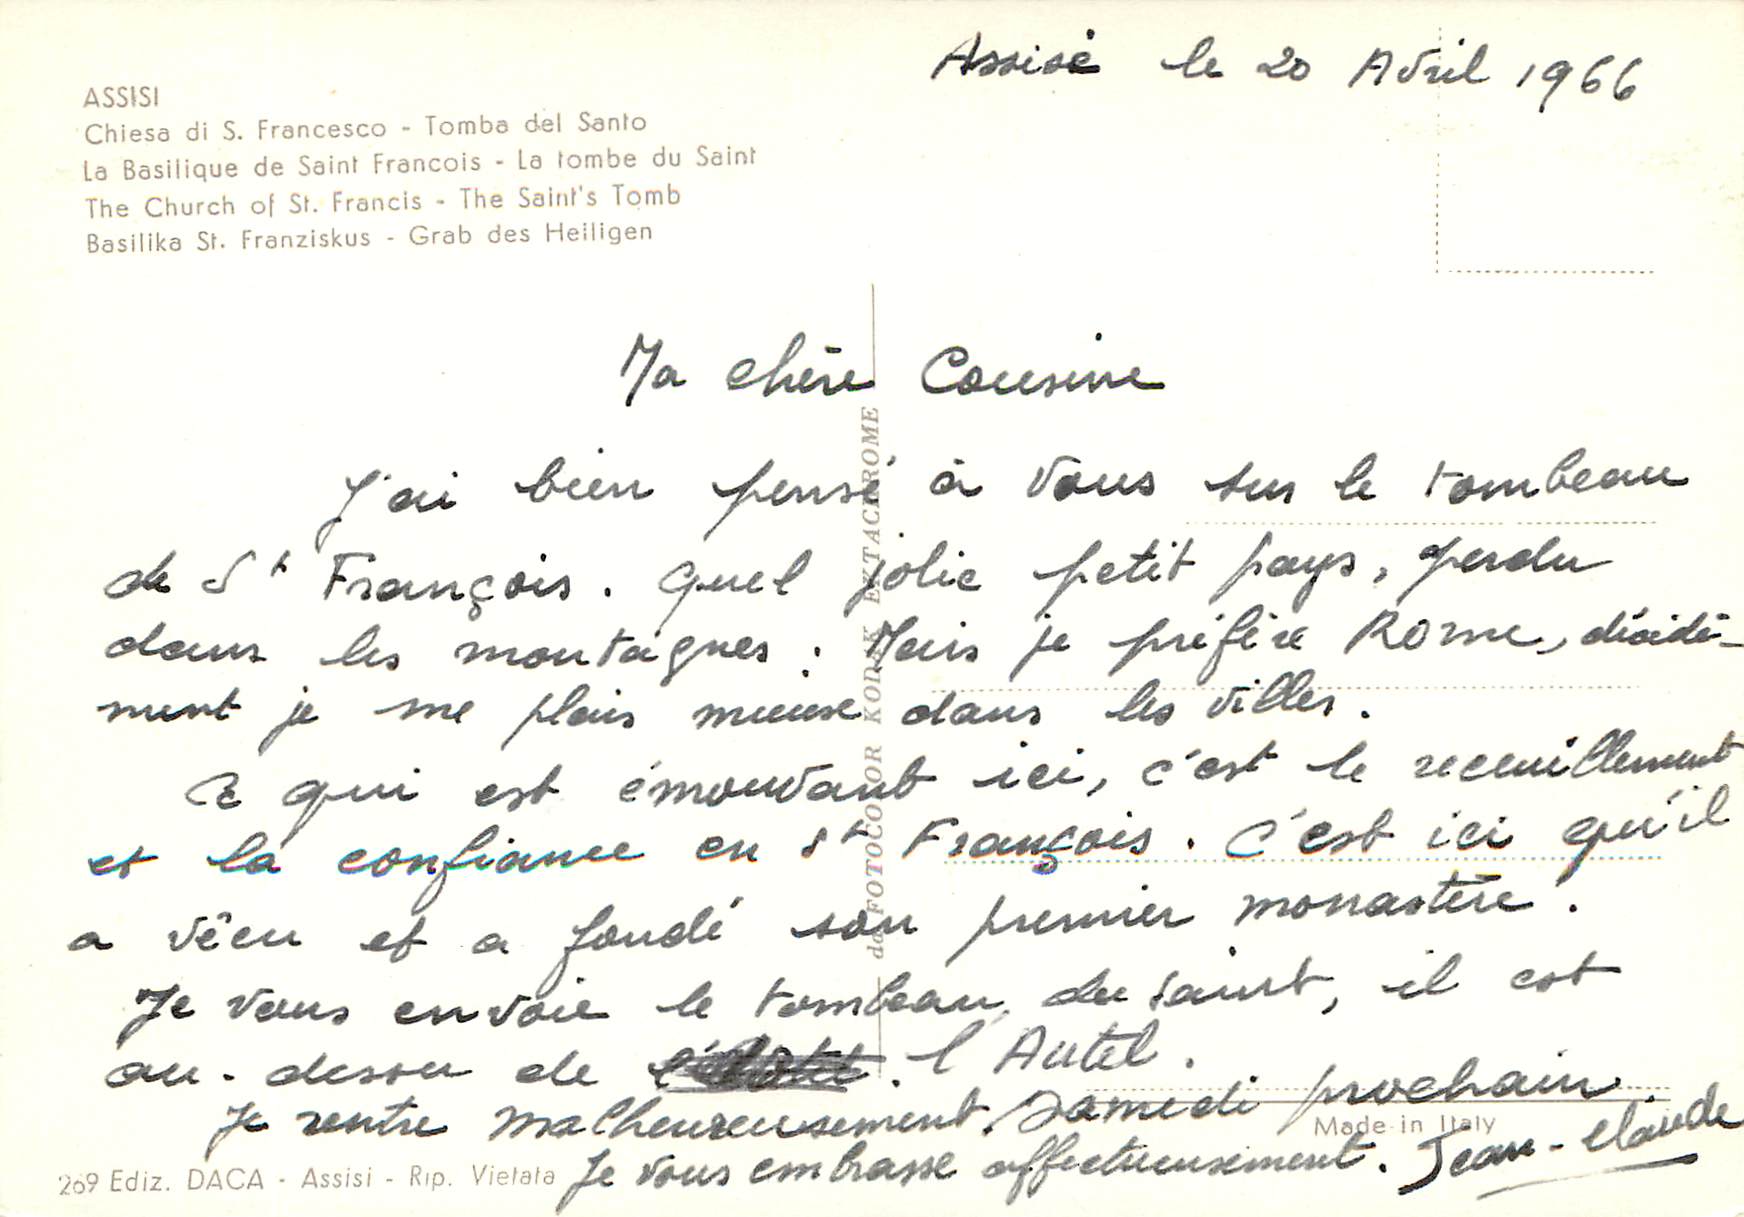 Assise le 20 Avril 1966
ASSISI
Chiesa di S. Francesco - Tomba del Santo
La Basilique de Saint Francois - La tombe du Saint
The Church of St. Francis - The Saint's Tomb
Basilika St. Franziskus - Grab des Heiligen
Ma chère Cousine
J'ai bien pensé à vous sur le tombeau
de St François. Quel jolie petit pays, perdu
dans les montagnes. Mais je préfère Rome, décidé-
ment je me plais mieux dans les villes.
Ce qui est émouvant ici, c'est le receuillement
et la confiance en St François. C'est ici qu'il
a vêcu et a fondé son premier monastère.
Je vous envoie le tombeau du saint, il est
au-dessou de l'Autel.
Je rentre malheureusement Samedi prochain.
Je vous embrasse affectueusement. Jean-Claude
da FOTOCOLOR KODAK EKTACHROME
Made in Italy
269 Ediz. DACA - Assisi - Rip. Vietata